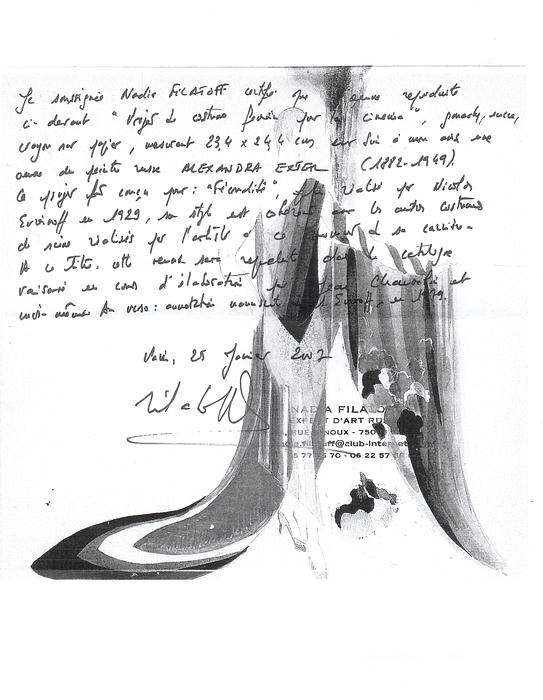 Je soussignée Nadia FILATOFF certifie que l'œuvre reproduite
ci-devant "Projet de costume féminin pour le cinéma", gouache, encre,
crayon sur papier, mesurant 23,4 x 24,4 cm est bien à mon avis une
œuvre du peintre russe ALEXANDRA EXTER (1882-1949).
Ce projet fut conçu pour: réalisé par Nicolas
Evreinoff en 1929, son style est cohérent avec les autres costumes
de scène réalisés par l'artiste à ce moment de sa carrière.
A ce titre, cette œuvre sera reproduite dans le catalogue
raisonné en cours d'élaboration par Jean Chauvelin et
moi-même. Au verso: annotation manuscrite Evreinoff 1929.
Paris, 25 Janvier 2002
NADIA FILATO
EXPERT D'ART RUS
RUE NOUX - 750
filatoff@club-internet
5 77 70 - 06 22 57